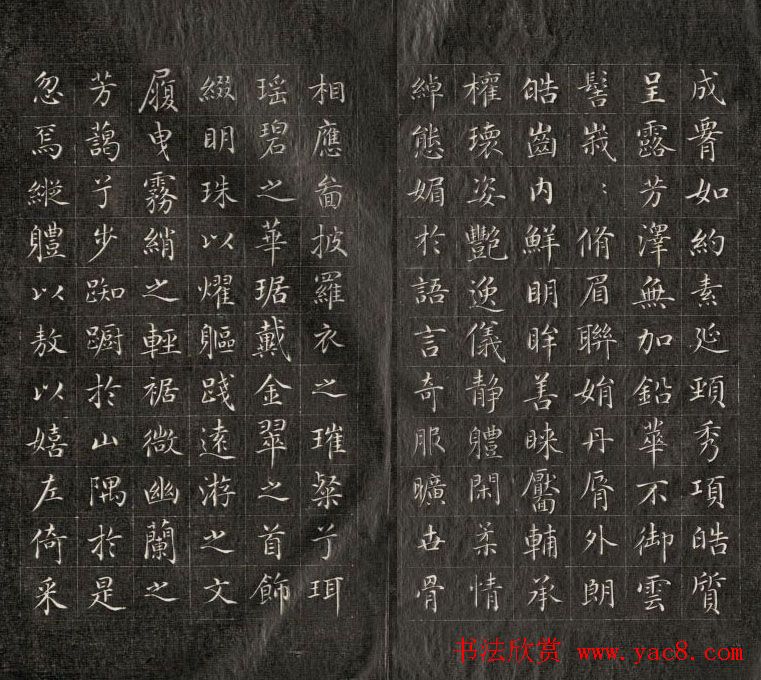 成腰如約素延頸秀項皓質
呈露芳澤無加鉛華不御雲
髻峩〻脩眉聯娟丹脣外朗
皓齒内鮮明眸善睞靨輔承
權瓌姿豔逸儀静軆閑柔情
綽態媚於語言奇服曠世骨
相應啚披羅衣之璀粲兮珥
瑶碧之華琚戴金翠之首飾
綴明珠以耀軀踐遠游之文
履曳霧綃之輕裾微幽蘭之
芳藹兮步踟躕於山隅於是
忽焉縱軆以敖以嬉左倚采
书法欣赏 www.yac8.com